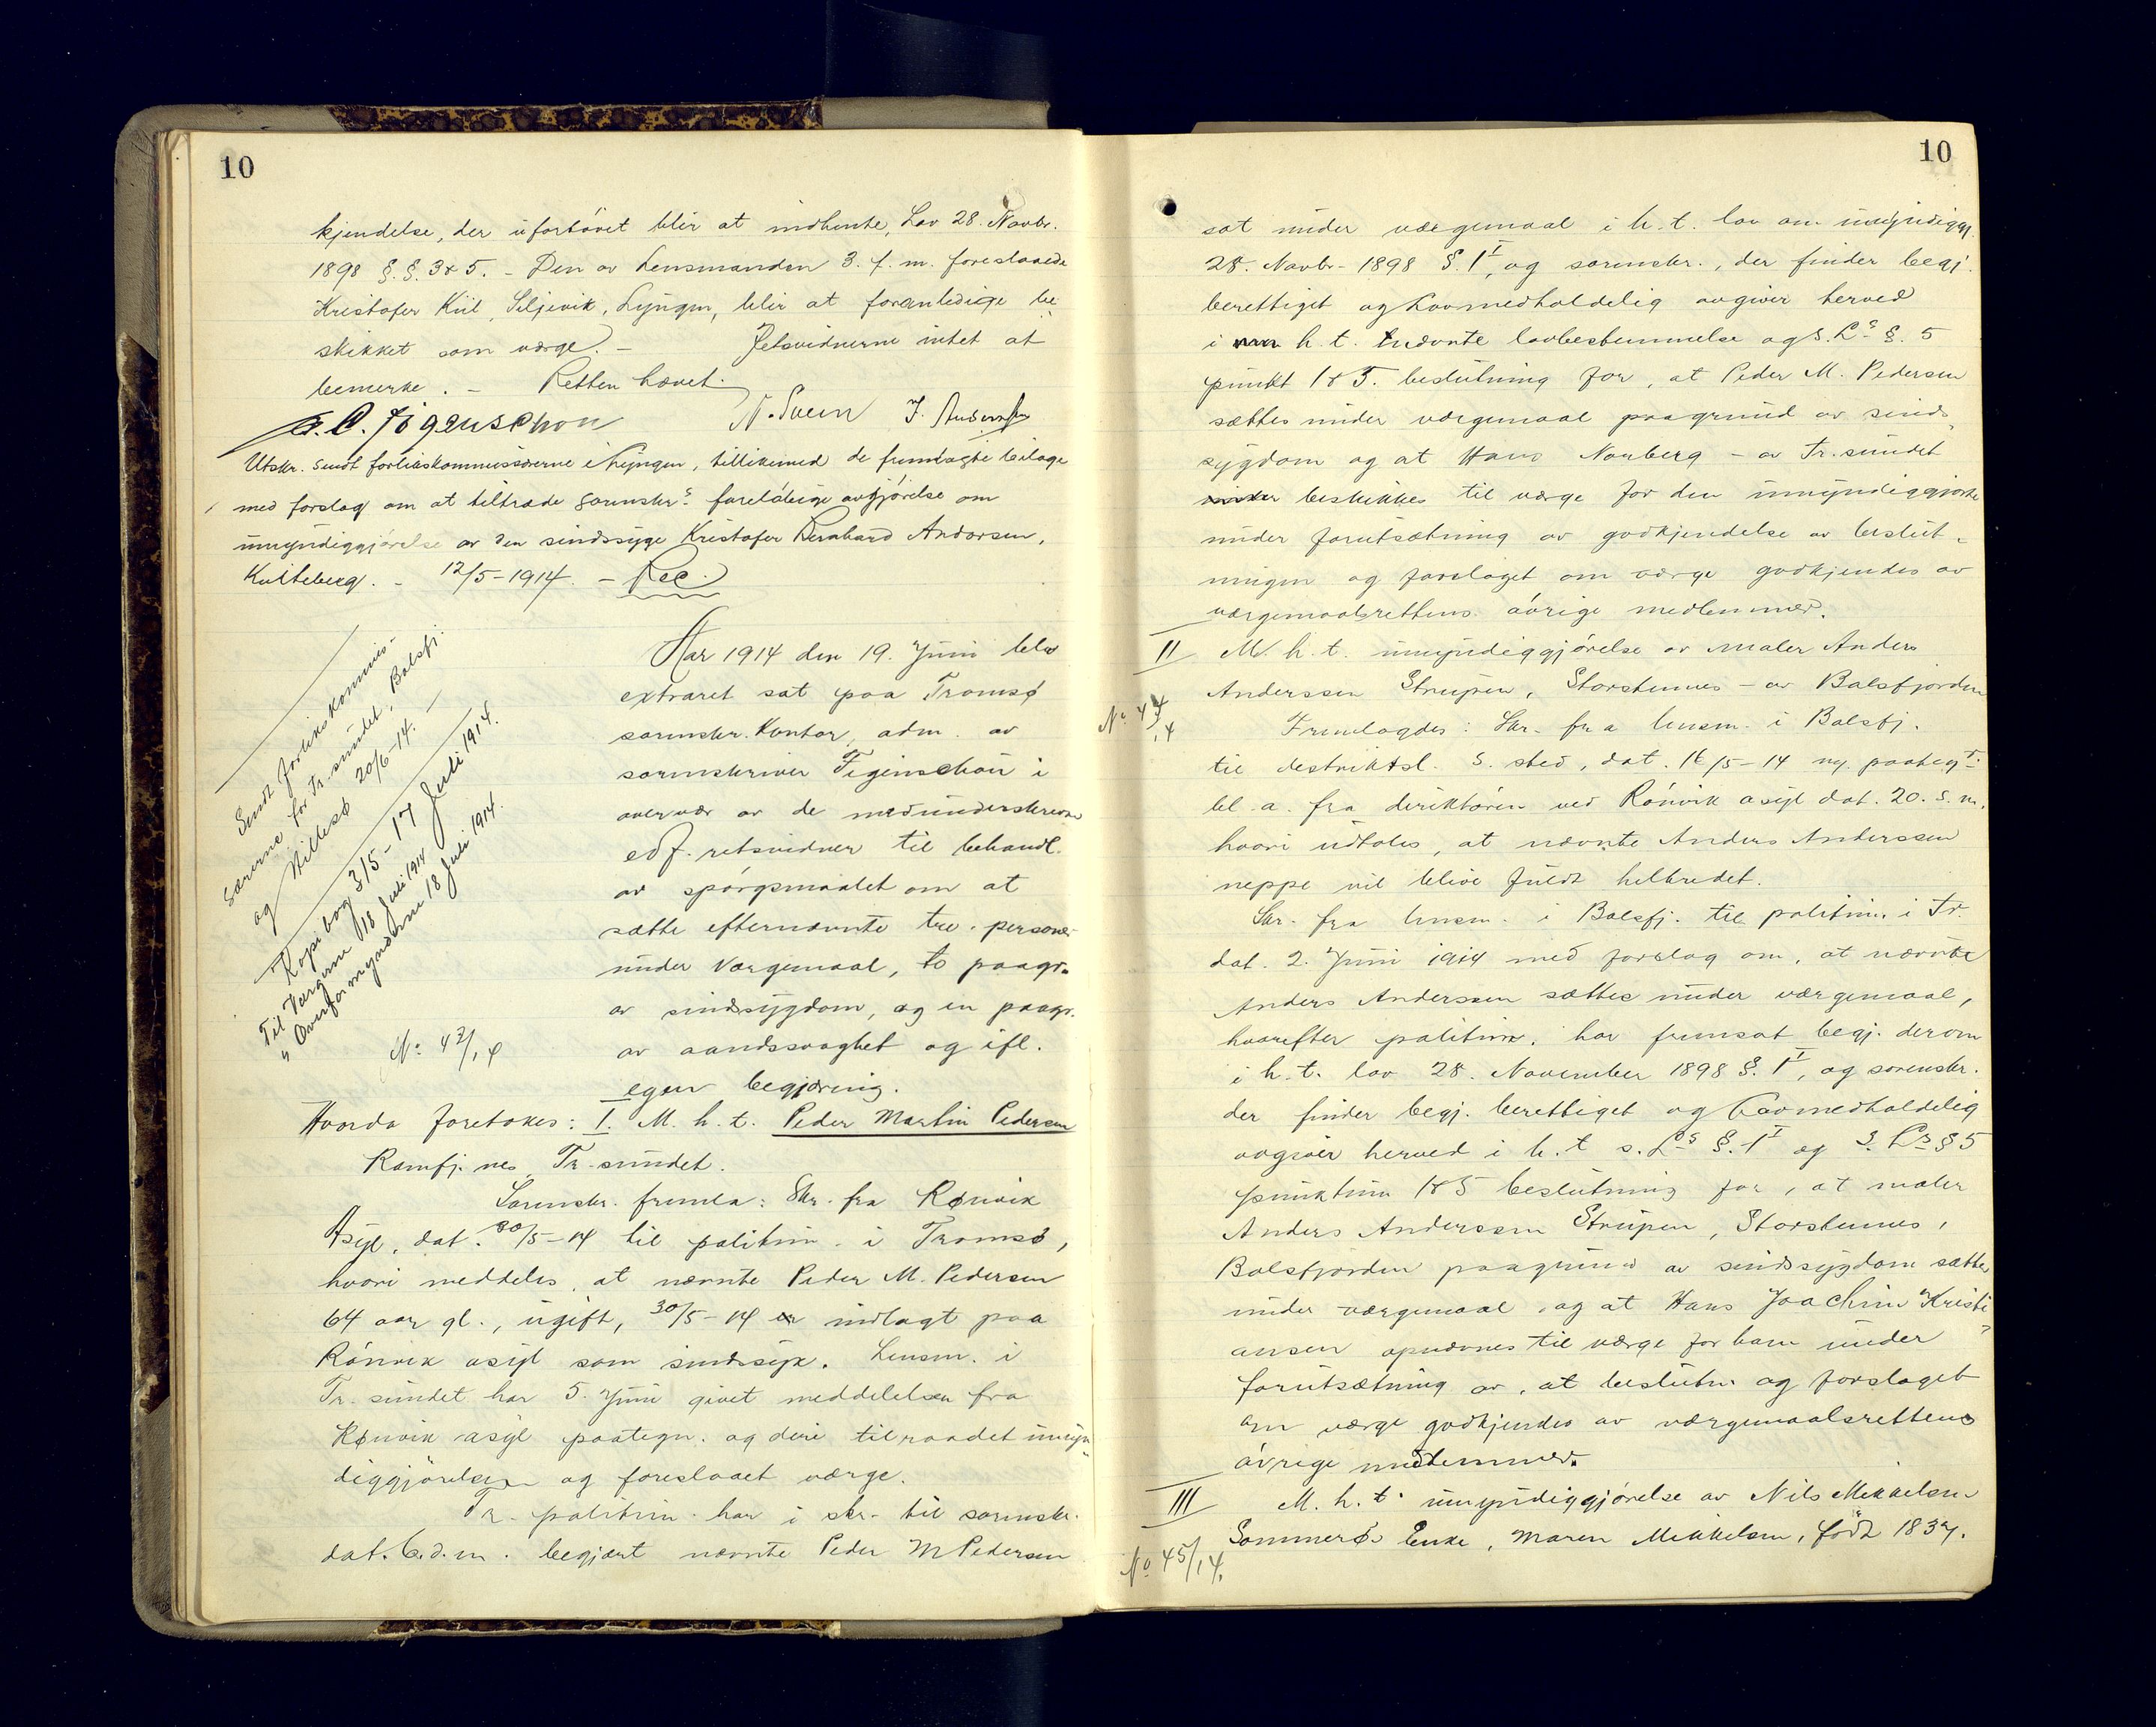 10
kjendelse, der ufortövet blir at indhente, Lov 28. Novbr.
1898 §.§. 3 & 5. - Den av Lensmanden 3. f. m. foreslaaede
Kristofer Kiil, Siljevik, Lyngen, blir at foranledige be-
skikket som værge. - Retsvidnerne intet at
bemerke. - Retten hævet.
Figenschou N. Svein J. Andersen
Utskr. sendt forlikskommissærerne i Lyngen, tillikemed de fremlagte bilage
med forslag om at tiltræde sorenskrs. foreløbige avgjörelse om
umyndiggjørelse av den sindssyge Kristofer Bernhard Andorsen,
Kvitebergr. - 12/5-1914. - Rec.
Sendt forlikskommis-
særerne for Tr.sundet, Balsfj.
og Hillesö 20/6-14. -
Kopibog 3/5 - 17 Juli 1914.
Til Værgerne 18 Juli 1914
" Overformynderne 18 Juli 1914.
No. 43/14
Aar 1914 den 19. Juni blev
extraret sat paa Tromsø
sorenskr. kontor, adm. av
sorenskriver Figenschou i
overvær av de medunderskrevne
edf. retsvidner til behandl.
av spörgsmaalet om at
sætte efternævnte tre personer
under Værgemaal, to paagr.
av sindssygdom, og en paagr.
av aandssvaghet og ifl.
egen begjæring.
Hvorda foretokes: I. M. h. t. Peder Martin Pedersen
Ramfj.nes, Tr.sundet.
Sorenskr. fremla: Skr. fra Rønvik
Asyl, dat. 30/5-14 til politim. i Tromsø,
hvori meddeles, at nævnte Peder M. Pedersen
64 aar gl., ugift, 30/5-14 er indlagt paa
Rönvik asyl som sindssyk. Lensm. i
Tr.sundet har 5. Juni givet meddelelsen fra
Rønvik asyl paategn. og deri tilraadet umyn-
diggjörelsen og foreslaaet værge.
Tr. politim. har i skr. til sorenskr.
dat. 6. d. m. begjært nævnte Peder M Pedersen
10
sat under værgemaal i h. t. lov om umyndiggj.
28. Novbr. 1898 §. 1 I, og sorenskr., der finder begj.
berettiget og Lovmedholdelig avgiver herved
i h. t. nævnte lovbestemmelse og s. Ls. §. 5
punkt 1 & 5. beslutning for, at Peder M. Pedersen
sættes under værgemaal paagrund av sinds-
sygdom og at Hans Norberg - av Tr.sundet
beskikkes til værge for den umyndiggjorte
under forutsætning av godkjendelse av beslut-
ningen og forslaget om værge godkjendes av
værgemaalsrettens övrige medlemmer.
II M. h. t. umyndiggjörelse av maler Anders
Anderssen Strupen, Storstennes - av Balsfjorden
No. 44/14
Fremlagdes: Skr. fra lensm. i Balsfj.
til distriktsl. s. sted, dat. 16/5-14 m. paategt.
bl. a. fra direktören ved Rönvik asyl dat. 20. s. m.
hvori udtales, at nævnte Anders Anderssen
neppe vil blive fuldt helbredet.
Skr. fra lensm. i Balsfj. til politim. i Tr.
dat. 2. Juni 1914 med forslag om, at nævnte
Anders Anderssen sættes under værgemaal,
hvorefter politim. har fremsat begj. derom
i h. t. lov 28. November 1898 §. 1 I, og sorenskr.
der finder begj. berettiget og Lovmedholdelig
avgiver herved i h. t. s. Ls §. 1 I og s. Ls § 5
punktum 1 & 5 beslutning for, at maler
Anders Anderssen Strupen, Storstennes,
Balsfjorden paagrund av sindssygdom sættes
under værgemaal, og at Hans Joachim Kristi-
ansen opnævnes til værge for ham under
forutsætning av, at beslutn. og forslaget
om værge godkjendes av værgemaalsrettens
övrige medlemmer.
III M. h. t. umyndiggjörelse av Nils Mikkelsen
Sommerøs Enke, Maren Mikkelsen, født 1837.
No. 45/14.